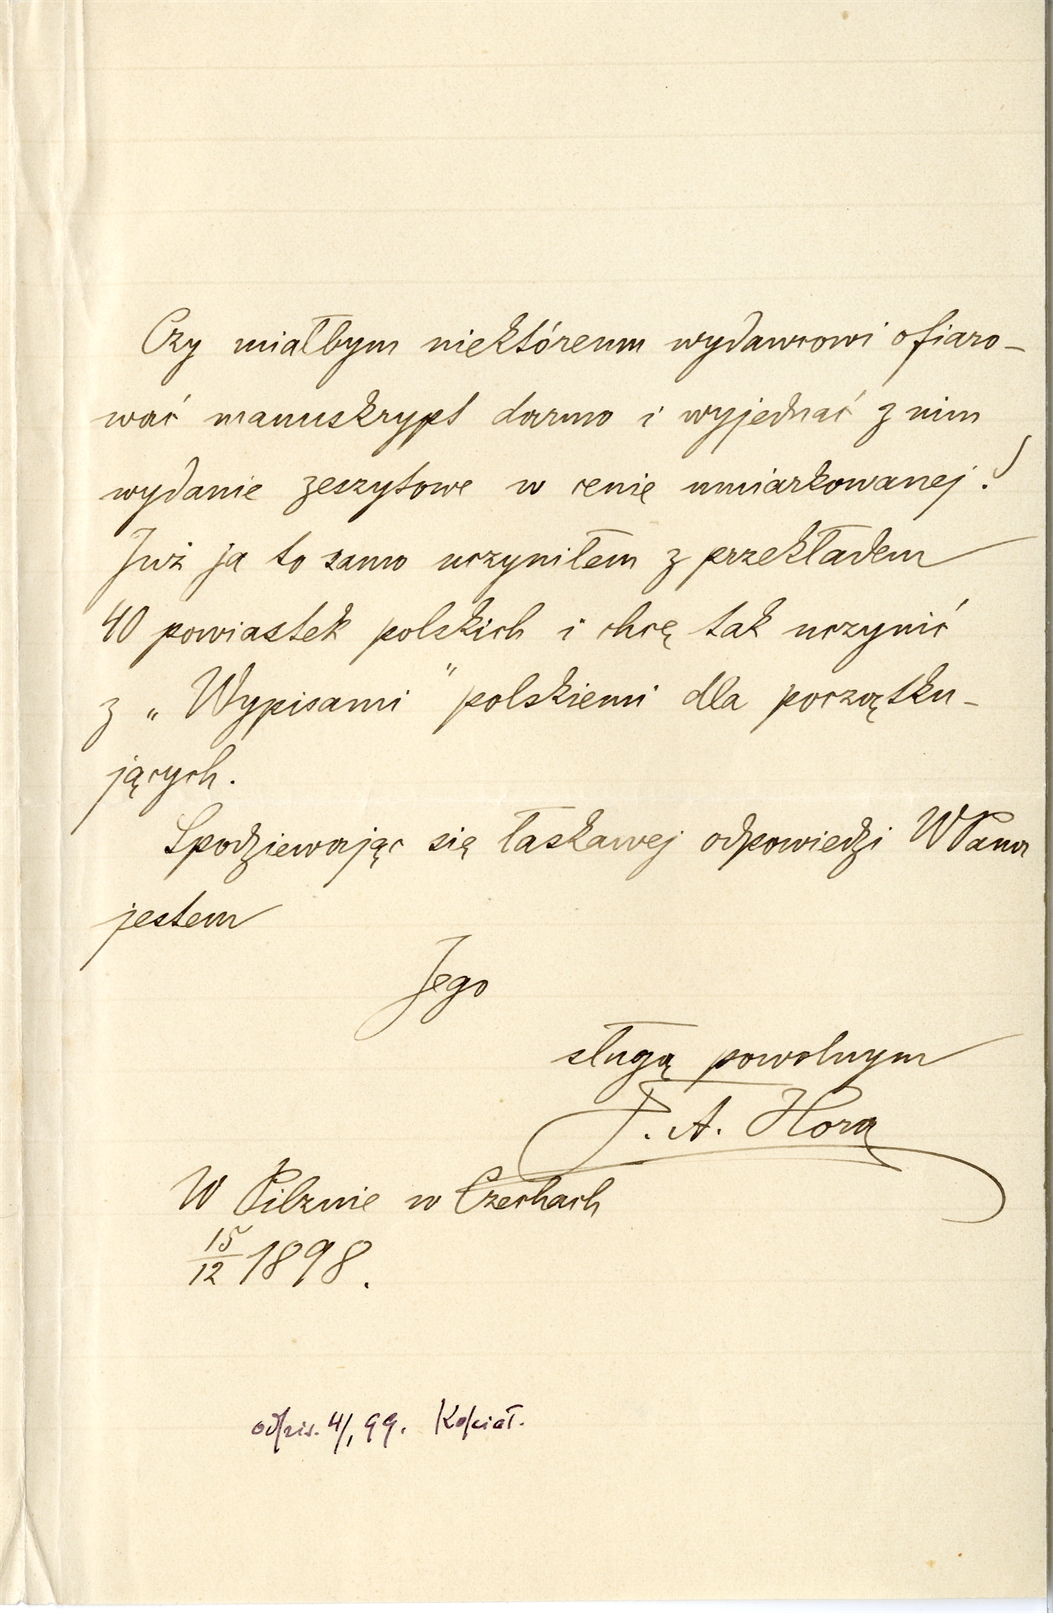 Czy miałbym niektórenm wydawcowi ofiaro-
wać manuskrypt darmo i wyjednać z nim
wydanie zeszytowe w cenie umiarkowanej?
Już ja to samo uczyniłem z przekładem
40 powiastek polskich i chcę tak uczynić
z „Wypisami" polskiemi dla początku-
jących.
Spodziewając się łaskawej odpowiedzi WPana
jestem
Jego
sługą powolnym
F. A. Hora
W Pilznie w Czechach
15/12 1898.
odpis. 4/1 99.